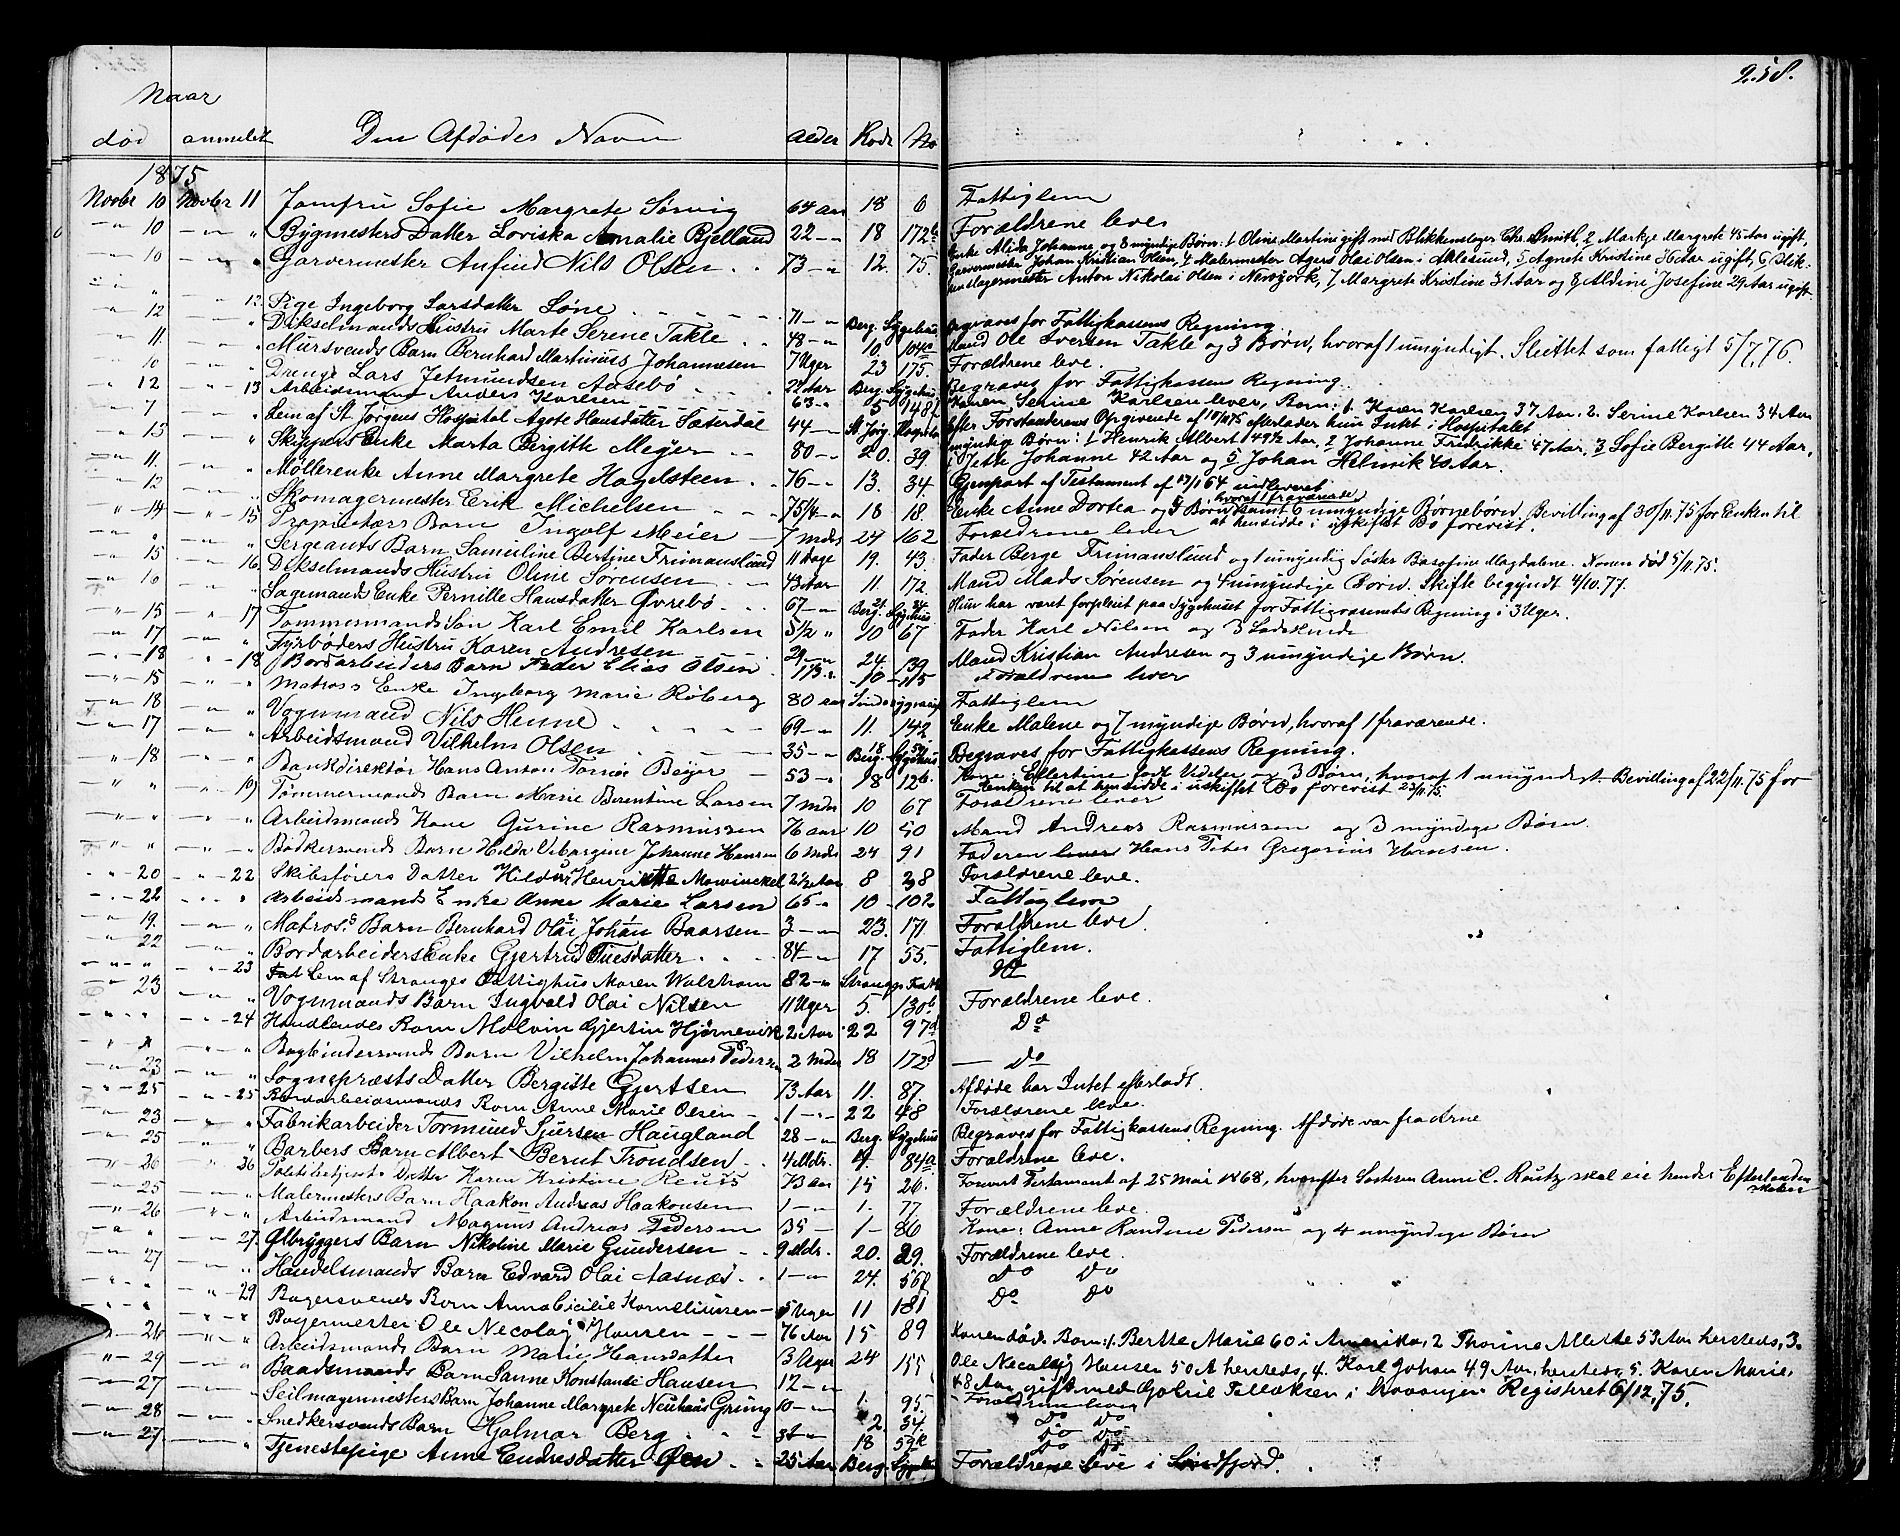 258.
Naar
død anmeldt Den Afdødes Navn Alder Rode No
1875
Novbr 10 Novbr 11 Jomfru Sofie Margrete Sørvig 64 Aar 18 6 Fattiglem
10 " Bygmesters Datter Loviska Amalie Bjelland 22 18 172b Forældrene leve
10 " Garvermester Anfind Nils Olsen 73 12. 75. Enke Alida Johanne og 8 myndige Børn: 1 Oline Martine gift med Blikkenslager Chr. Smith, 2 Markje Margrete 45 Aar ugift,
Garvermester Johan Kristian Olsen, 4 Malermester Agers Olai Olsen i Aalesund, 5 Agnete Kristine 36 Aar ugift, 6 Blik-
kenslagermester Anton Nikolai Olsen i Newyork, 7 Margrete Kristine 31 Aar og 8 Aldine Josefine 29 Aar ugift.
" 12. Pige Ingeborg Larsdatter Løne 71 Berg. Sygehus Begraves for Fattigkassens Regning
12 " Dikselmands Hustru Marte Serene Takle 48 10. 104a Mand Ole Iversen Takle og 3 Børn, hvoraf 1 umyndigt. Sluttet som fattigt 5/7.76.
11. " Mursvends Barn Bernhard Martinus Johannesen 7 Uger 23 175. Forældrene leve.
10 " Dreng Lars Jetmundsen Aasebø 2½ Aar Berg. Sygehus Begraves for Fattigkassens Regning
12 13 Arbeidsmand Anders Karlsen 63 5 148 Konen Serine Karlsen lever, Børn: 1. Karen Karlsen 37 Aar. 2. Serine Karlsen 34 Aar
7 " Lem af St Jørgens Hospital Agote Hansdatter Sæterdal 44 St Jørg. Hospital Efter Forstanderens Opgivende af 10/11 75 efterlader hun Intet i Hospitalet
13 " Skippers Enke Marta Birgitte Meyer 80 20. 39. myndige Børn: 1 Henrik Albert 49½ Aar, 2 Johanne Fredrikke 47 Aar, 3 Sofie Bergitte 44 Aar,
4 Jette Johanne 42 Aar og 5 Johan Helmik 40 Aar.
11. " Møllerenke Anne Margrete Hagelsteen 76 13. 34. Gjenpart af Testament af 17/1 64 indleveret
12 " Skomagermester Erik Michelsen 75¼ 18 18. Enke Anne Dortea og 5 Børn hvoraf 1 fraværende samt 6 umyndige Børnebørn. Bevilling af 30/11.75 for Enken til
at hensidde i uskiftet Bo forevist.
14 15 Proprietærs Barn Ingolf Meier 7 Mdr 24 162 Forældrene lever
" " Sergeants Barn Samuline Bertine Frimanslund 11 Dage 19. 43. Fader Berge Frimanslund og 1 umyndig Søster Basefine Magdalene. Konen død 5/11.75.
15 16. Dikselmands Hustru Oline Sørensen 43 Aar 11 172. Mand Mads Sørensen og 4 umyndige Børn. Skifte begyndt 4/10.77.
10 " Sagmands Enke Pernille Hansdatter Øvrebø 67 Berg. Sygehus Hun har været forpleiet paa Sygehuset for Fattigvæsenets Regning i 3 Uger.
15 17 Tømmermands Søn Karl Emil Karlsen 5½ 10 67 Fader Karl Nilsen og 3 Sødskende
17 " Fyrbøders Hustru Karen Andresen 29 24. 139 Mand Kristian Andresen og 3 umyndige Børn.
18 18 Bordarbeiders Barn Peder Elias Olsen 1⅓ 10 115 Forældrene lever
15 " Matros Enke Ingeborg Marie Roberg 80 aar Fattiglem
18 " Vognmand Nils Henne 69 11. 142 Enke Malene og 7 myndige Børn, hvoraf 1 fraværende.
17 " Arbeidsmand Vilhelm Olsen 35 Berg. Sygehus Begraves for Fattigkassens Regning.
18 " Bankdirektør Hans Anton Tomas Beyer 53 18 126. Kone: Ellertine født Udeler og 3 Børn, hvoraf 1 umyndigt. Bevilling af 22/11.75 for
Enken til at hensidde i uskiftet Bo forevist 23/11.75.
" 19 Tømmermands Barn Marie Berentine Larsen 7 Mdr 10 67 Forældrene lever
" " Arbeidsmands Kone Gurine Rasmussen 76 aar 10 50 Mand Andreas Rasmussen og 3 myndige Børn.
" " Bødkersvends Barn Hilda Vibargine Johanne Hansen 6 Mdr 24 91 Faderen lever Hans Peter Gregorius Hansen.
20 22 Skibsførers Datter Hildur Henriette Mowinckel 2½ Aar 8 28 Forældrene leve.
22 " Arbeidsmands Enke Anne Marie Larsen 65 10 102 Fattiglem
19. " Matros's Barn Bernhard Olai Johan Baarsen 3 23. 171 Forældrene leve.
22 " Bordarbeiders Enke Gjertrud Tuesdatter 84 17 55. Fattiglem.
" 23 Lem af Stranges Fattighus Maren Walstrøm 82 Stranges Fatt. Do
23 " Vognmands Barn Ingvald Olai Nilsen 11 Uger 5. 130b Forældrene leve.
" 24 Handlendes Barn Malvin Gjertin Hjørnevik 2 Aar 22 97d Do
" " Bogbindersvends Barn Vilhelm Johannes Pedersen 2 Mdr 18 172d Do
23 " Sognepræsts Datter Bergitte Gjertsen 73 Aar 11. 87. Afdøde har Intet efterladt.
25 25 Bordarbeidsmands Barn Anne Marie Olsen 1 22 48 Forældrene leve.
23 " Fabrikarbeider Tormund Sjursen Haugland 28 Berg. Sygehus Begraves for Fattigkassens Regning. Afdøde var fra Arne
25 " Barbers Barn Albert Bernt Trondsen 4 Mdr. 9. 84a Forældrene leve.
26 26 Politibetjents Datter Karen Kristine Reuss 73 aar 15 26. Forevist Testament af 25 Mai 1868, hvorefter Søsteren Anne C. Rautz skal eie hendes Efterladenskaber
25 " Malermesters Barn Haakon Andreas Haakonsen 1 1. 77. Forældrene leve.
26 " Arbeidsmand Magnus Andreas Pedersen 35 1 86 Kone: Anne Randine Pedersen og 4 umyndige Børn
" 27. Ølbryggers Barn Nikoline Marie Gundersen 9 Mdr. 20. 29. Forældrene leve.
27 " Handelsmands Barn Edvard Olai Aasnæs 1 24. 56 Do Do
" 29 Bagersvends Barn Anna Cicilie Korneliussen 5 Uger 11 181 Do Do
" " Bagermester Ole Necolay Hansen 76 Aar 15 89 Konen død. Børn: 1. Berthe Marie 60 i Amerika, 2 Thorine Alette 53 Aar hersteds, 3.
26 " Arbeidsmands Barn Marie Hansdatter 3 Uger 24 155 Ole Necolay Hansen 50 A hersteds, 4. Karl Johan 49 Aar, hersteds, 5. Karen Marie,
29 " Baadsmands Barn Sanne Konstanse Hansen 12 48 Aar gift med Gabriel Tellefsen i Stavanger Registreret 6/12.75.
27 " Seilmagermesters Barn Johanne Margrete Neuhaus Grung 10 1. 95. Forældrene lever
28 " Snedkersvends Barn Hjalmar Berg 3½ 2. 34. Do Do
27. " Tjenestepige Anne Endresdatter Øen 25 Aar Berg. Sygehus Forældrene leve i Søndfjord.